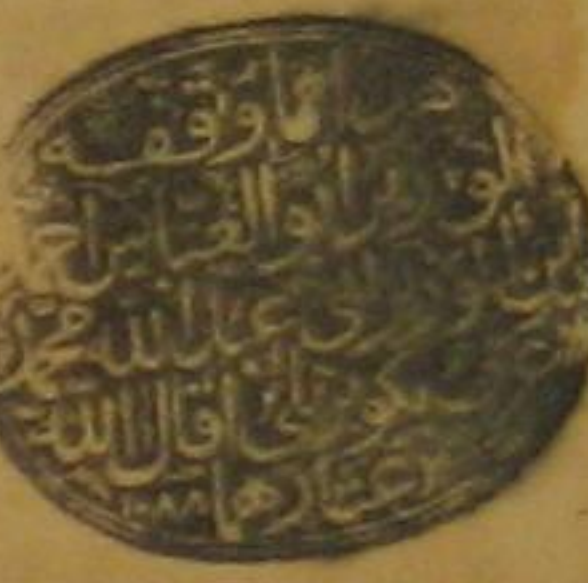 هذا مما وقفه
الوزير ابو العباس احمد
ابن الوزير ابي عبد الله محمد
بكوبريلى اقال الله
عثارهما ١٠٨٨